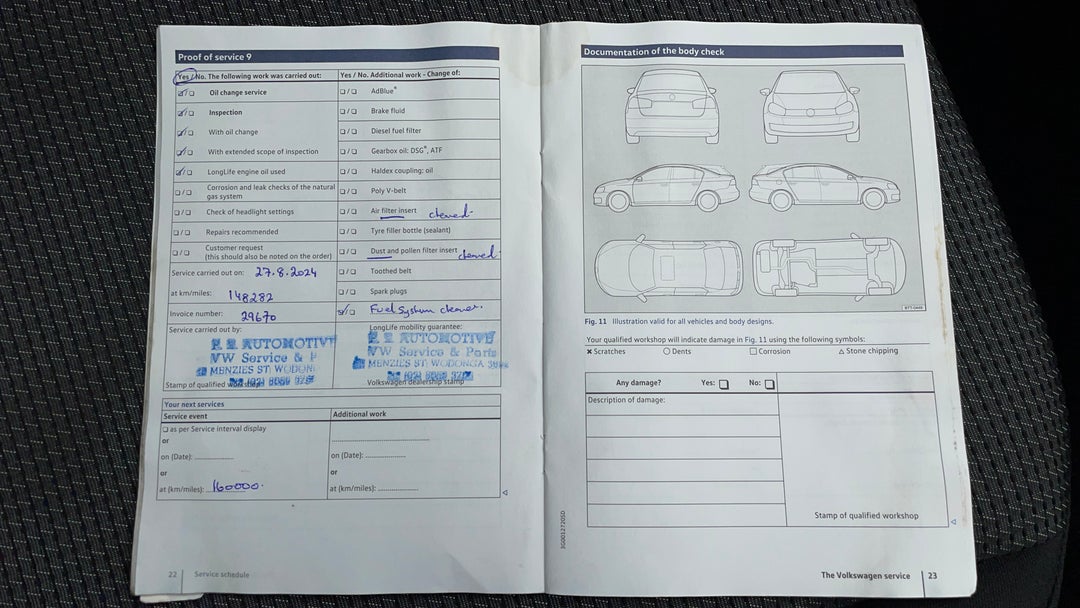 Proof of service 9
Yes / No. The following work was carried out:
Yes / No. Additional work - Change of:
Oil change service
AdBlue®
Inspection
Brake fluid
With oil change
Diesel fuel filter
With extended scope of inspection
Gearbox oil: DSG®, ATF
LongLife engine oil used
Haldex coupling: oil
Corrosion and leak checks of the natural
gas system
Poly V-belt
Check of headlight settings
Air filter insert cleaned.
Repairs recommended
Tyre filler bottle (sealant)
Customer request
(this should also be noted on the order)
Dust and pollen filter insert cleaned.
Service carried out on: 27.8.2024
Toothed belt
at km/miles: 148282
Spark plugs
Invoice number: 29670
Fuel System cleaner.
Service carried out by:
AUTOMOTIVE
VW Service &
MENZIES ST.
Stamp of qualified
LongLife mobility guarantee:
AUTOMOTIVE
VW Service & Parts
MENZIES ST. WODONGA
Volkswagen dealership stamp
Your next services
Service event
Additional work
as per Service interval display
or
on (Date): ....................
on (Date): ....................
or
or
at (km/miles): 160000.
at (km/miles): ....................
22 Service schedule
Documentation of the body check
Fig. 11 Illustration valid for all vehicles and body designs.
Your qualified workshop will indicate damage in Fig. 11 using the following symbols:
× Scratches ○ Dents □ Corrosion △ Stone chipping
Any damage? Yes: No:
Description of damage:
Stamp of qualified workshop
The Volkswagen service 23